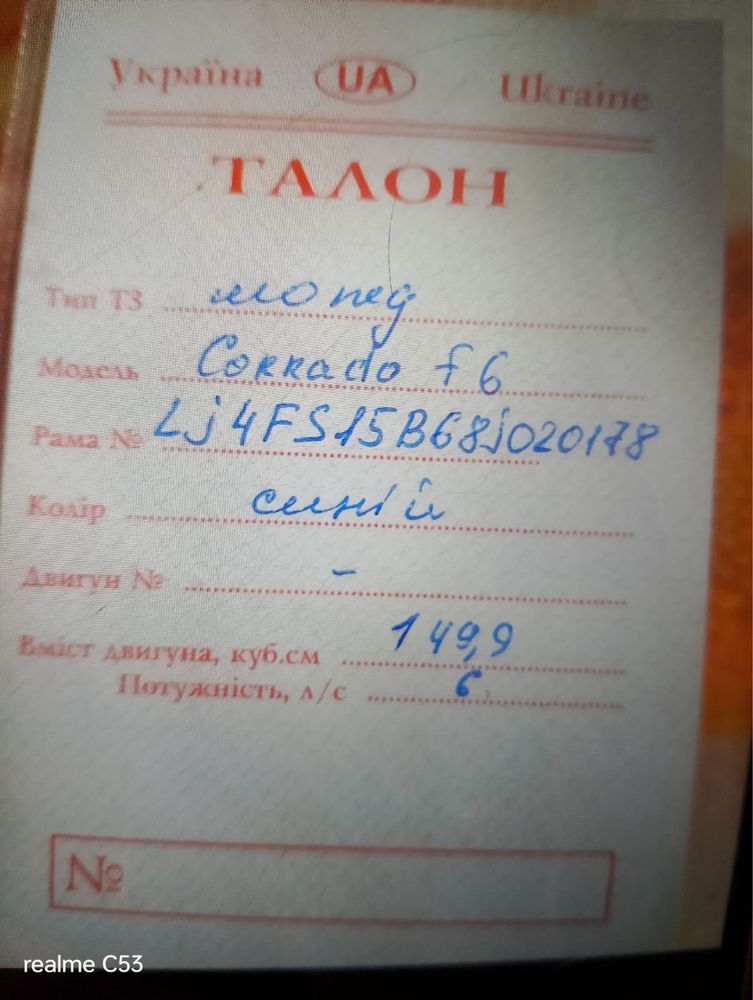 Україна UA Ukraine
ТАЛОН
Тип ТЗ мопед
Модель Corrado F6
Рама № Lj4FS15B68j020178
Колір синій
Двигун № -
Вміст двигуна, куб.см 149,9
Потужність, л/с 6
№
realme C53